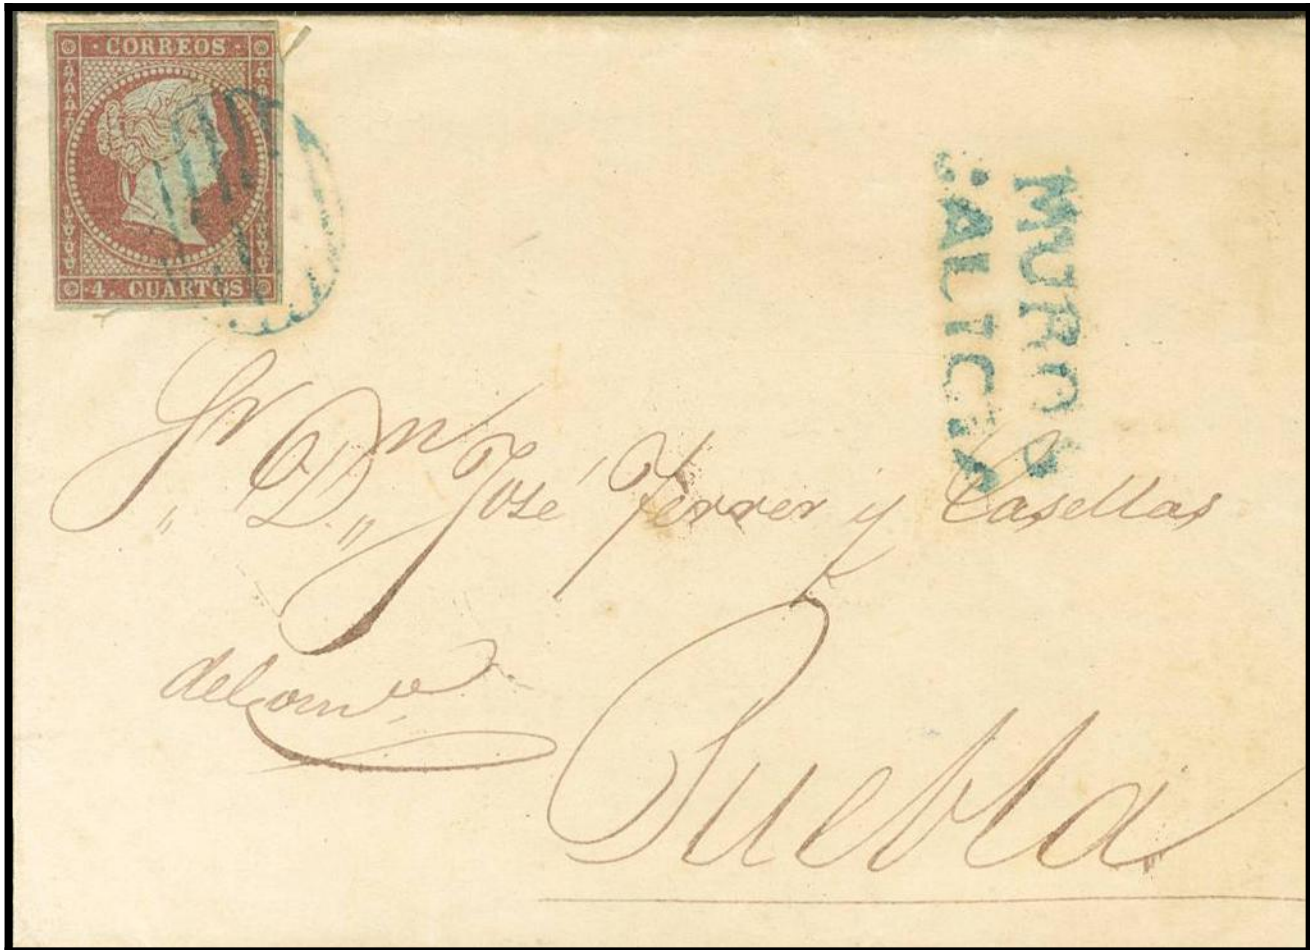 · CORREOS ·
· 4. CUARTOS ·
MUROS
GALICIA
Sr. Dn. José Ferrer y Casellas
del comcio.
Puebla